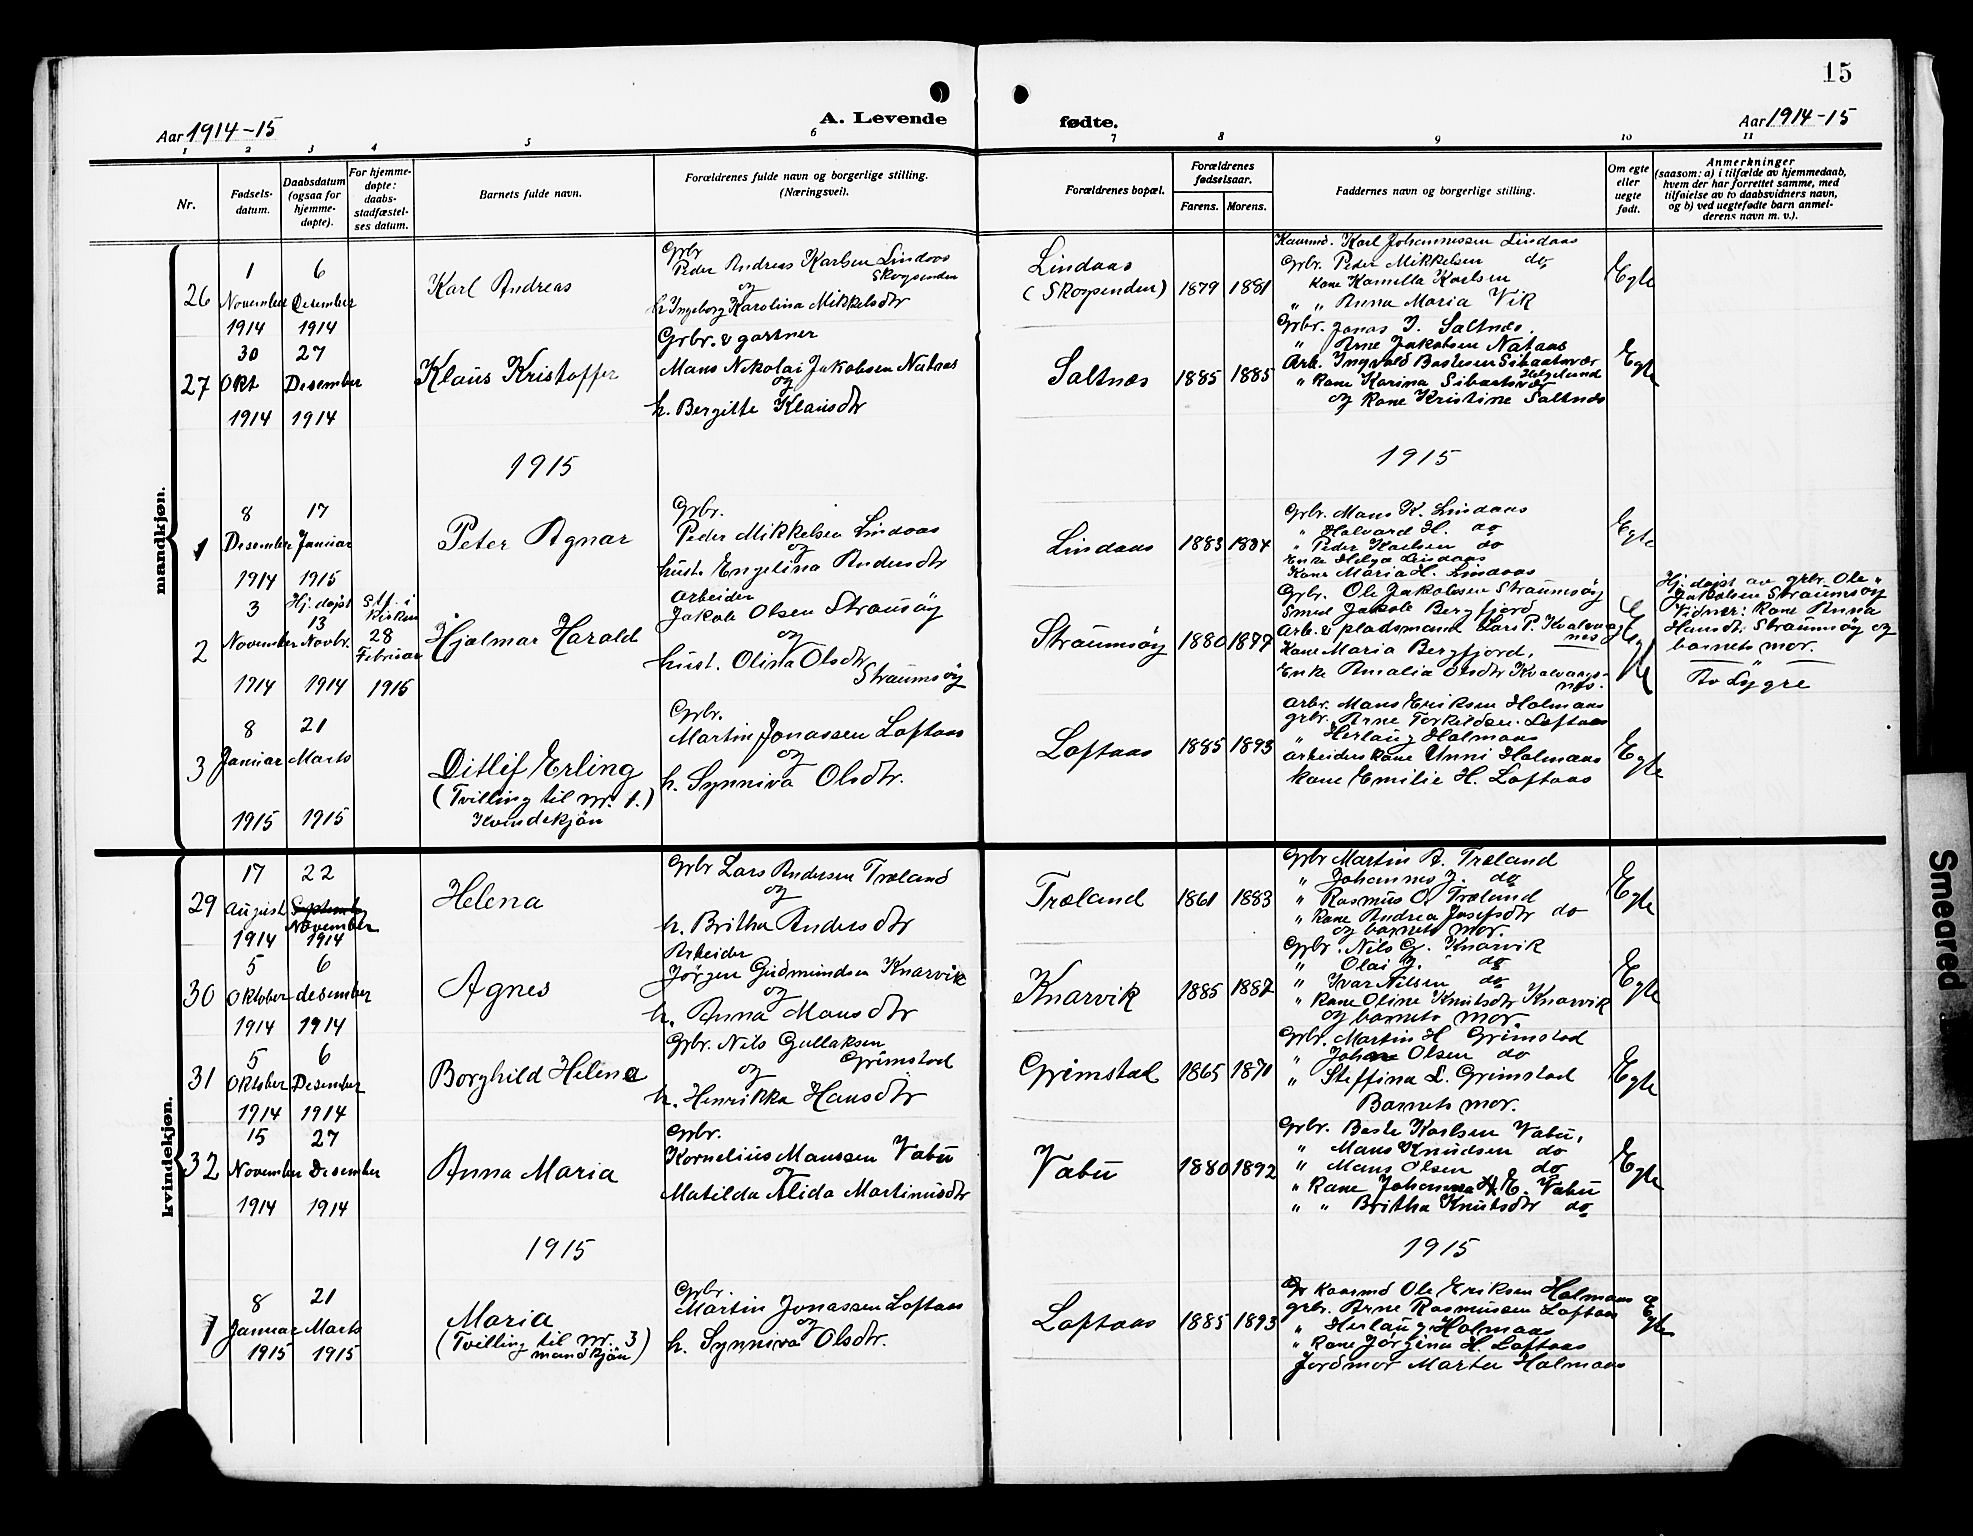 15
Aar 1914-15
A. Levende
fødte.
Aar 1914-15
1 2 3 4 5 6 7 8 9 10 11
Nr.
Fødsels-
datum.
Daabsdatum
(ogsaa for
hjemme-
døpte).
For hjemme-
døpte:
daabs-
stadfæstel-
ses datum.
Barnets fulde navn.
Forældrenes fulde navn og borgerlige stilling.
(Næringsvei).
Forældrenes bopæl.
Forældrenes
fødselsaar.
Farens. Morens.
Faddernes navn og borgerlige stilling.
Om egte
eller
uegte
født.
Anmerkninger
(saasom: a) i tilfælde av hjemmedaab,
hvem der har forrettet samme, med
tilføielse av to daabsvidners navn,
og b) ved uegtefødte barn anmel-
derens navn m. v.).
mandkjøn.
26
1
November
1914
6
Desember
1914
Karl Andreas
Grbr
Peder Andreas Karlsen Lindaas
Skogsenden
og
h. Ingeborg Karolina Mikkelsdtr
Lindaas
(Skogsenden)
1879 1881
Kaarmd. Karl Johannessen Lindaas
Grbr. Peder Mikkelsen do
Kone Kamilla Karlsen
" " Anna Maria Vik
Egte
27
30
Okt
1914
27
Desember
1914
Klaus Kristoffer
Grbr. & gartner
Mans Nikolai Jakobsen Nataas
og
h. Bergitte Klausdtr
Saltnæs
1885 1885
Grbr. Jonas J. Saltnæs.
" Arne Jakobsen Nataas
Arb. Ingvald Bastesen Sibaatsvær
Helgelund
" Kone Karina Sibaatsvær
og Kone Kristine Saltnæs
Egte
1915
1915
1
8
Desember
1914
17
Januar
1915
Peter Agnar
Grbr.
Peder Mikkelsen Lindaas
og
hust. Engelina Andersdtr
Lindaas
1883 1884
Grbr. Mans K. Lindaas
" Halvard H. do
" Peder Karlsen do
Enke Helga Lindaas
Kone Maria H. Lindaas
Egte
2
3
November
1914
Hj. døpt
13
Novbr.
1914
Stf. i
Kirken
28
Februar
1915
Hjalmar Harald
Arbeider
Jakob Olsen Straumsöy
og
hust. Olina Olsdtr
Straumsöy
Straumsöy
1880 1877
Grbr. Ole Jakobsen Straumsöy
Smed Jakob Bergfjord
Arb. & pladsmand Lars P. Kvalvaag-
nes
Kone Maria Bergfjord,
Enke Amalia Olsdtr Kvalvaags-
nes.
Egte
Hj. døpt av grbr. Ole
Jakobsen Straumsöy
Vidner: Kone Anna
Hansdtr. Straumsöy og
barnets mor.
Av Lygre
3
8
Januar
1915
21
Marts
1915
Ditlef Erling
(Tvilling til nr. 1.)
Kvindekjön
Grbr.
Martin Jonassen Loftaas
og
h. Synniva Olsdtr.
Loftaas
1885 1893
Arbr. Mans Eriksen Holmaas
grbr. Arne Torkildsen Loftaas
" Herlaug Holmaas
arbeiderskone Unni Holmaas
Kone Emilie H. Loftaas
Egte
kvindekjøn.
29
17
August
1914
22
September
November
1914
Helena
Grbr Lars Andersen Træland
og
h. Britha Andersdtr
Træland
1861 1883
Grbr Martin A. Træland
" Johannes J. do
" Rasmus O. Træland
" Kone Andrea Josefsdtr do
og barnets mor.
Egte
30
5
Oktober
1914
6
desember
1914
Agnes
Arbeider
Jørgen Gudmundsen Knarvik
og
h. Anna Mansdtr
Knarvik
1885 1887
Grbr. Nils G. Knarvik
" Olai J. do
" Ivar Nilsen do
" Kone Oline Knutsdtr Knarvik
og barnets mor
Egte
31
5
Oktober
1914
6
Desember
1914
Borghild Helene
Grbr. Nils Gullaksen
Grimstad
og
h. Henrikka Hansdtr
Grimstad
1865 1871
Grbr. Martin H Grimstad
" Johan Olsen do
" Steffina L. Grimstad
Barnets mor.
Egte
32
15
November
1914
27
Desember
1914
Anna Maria
Grbr.
Kornelius Manssen Vabö
og
Matilda Alida Martinusdtr
Vabö
1880 1892
Grbr. Baste Karlsen Vabö,
" Mans Knudsen do
" Mans Olsen do
" Kone Johanna E. Vabö
" " Britha Knutsdtr do
Egte
1915
1915
1
8
Januar
1915
21
Marts
1915
Maria
(Tvilling til nr. 3
mandkjön)
Grbr.
Martin Jonassen Loftaas
og
h. Synniva Olsdtr.
Loftaas
1885 1893
Kaarmd Ole Eriksen Holmaas
grbr. Arne Rasmussen Loftaas
" Herlaug Holmaas
" Kone Jørgina H. Loftaas
Jordmor Marta Holmaas
Egte
Smeared